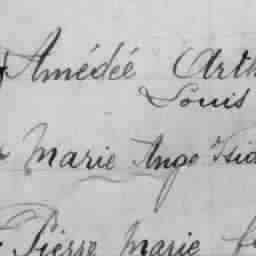 Amédéé Arth
Louis
Marie Ange Isid
Pierre Marie f